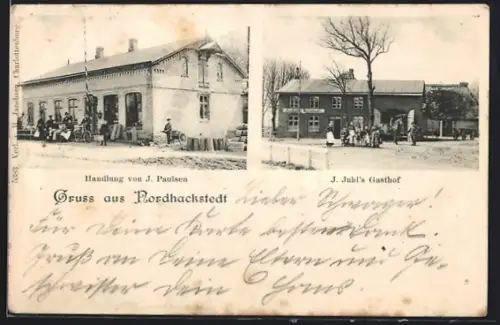 Handlung von J. Paulsen
J. Juhl's Gasthof
Gruss aus Nordhackstedt
Lieber Schwager!
Für Deine Karte besten Dank.
Gruß an Deine Eltern und Ge-
schwister dein Hans
5381 Verl.
Charlottenburg